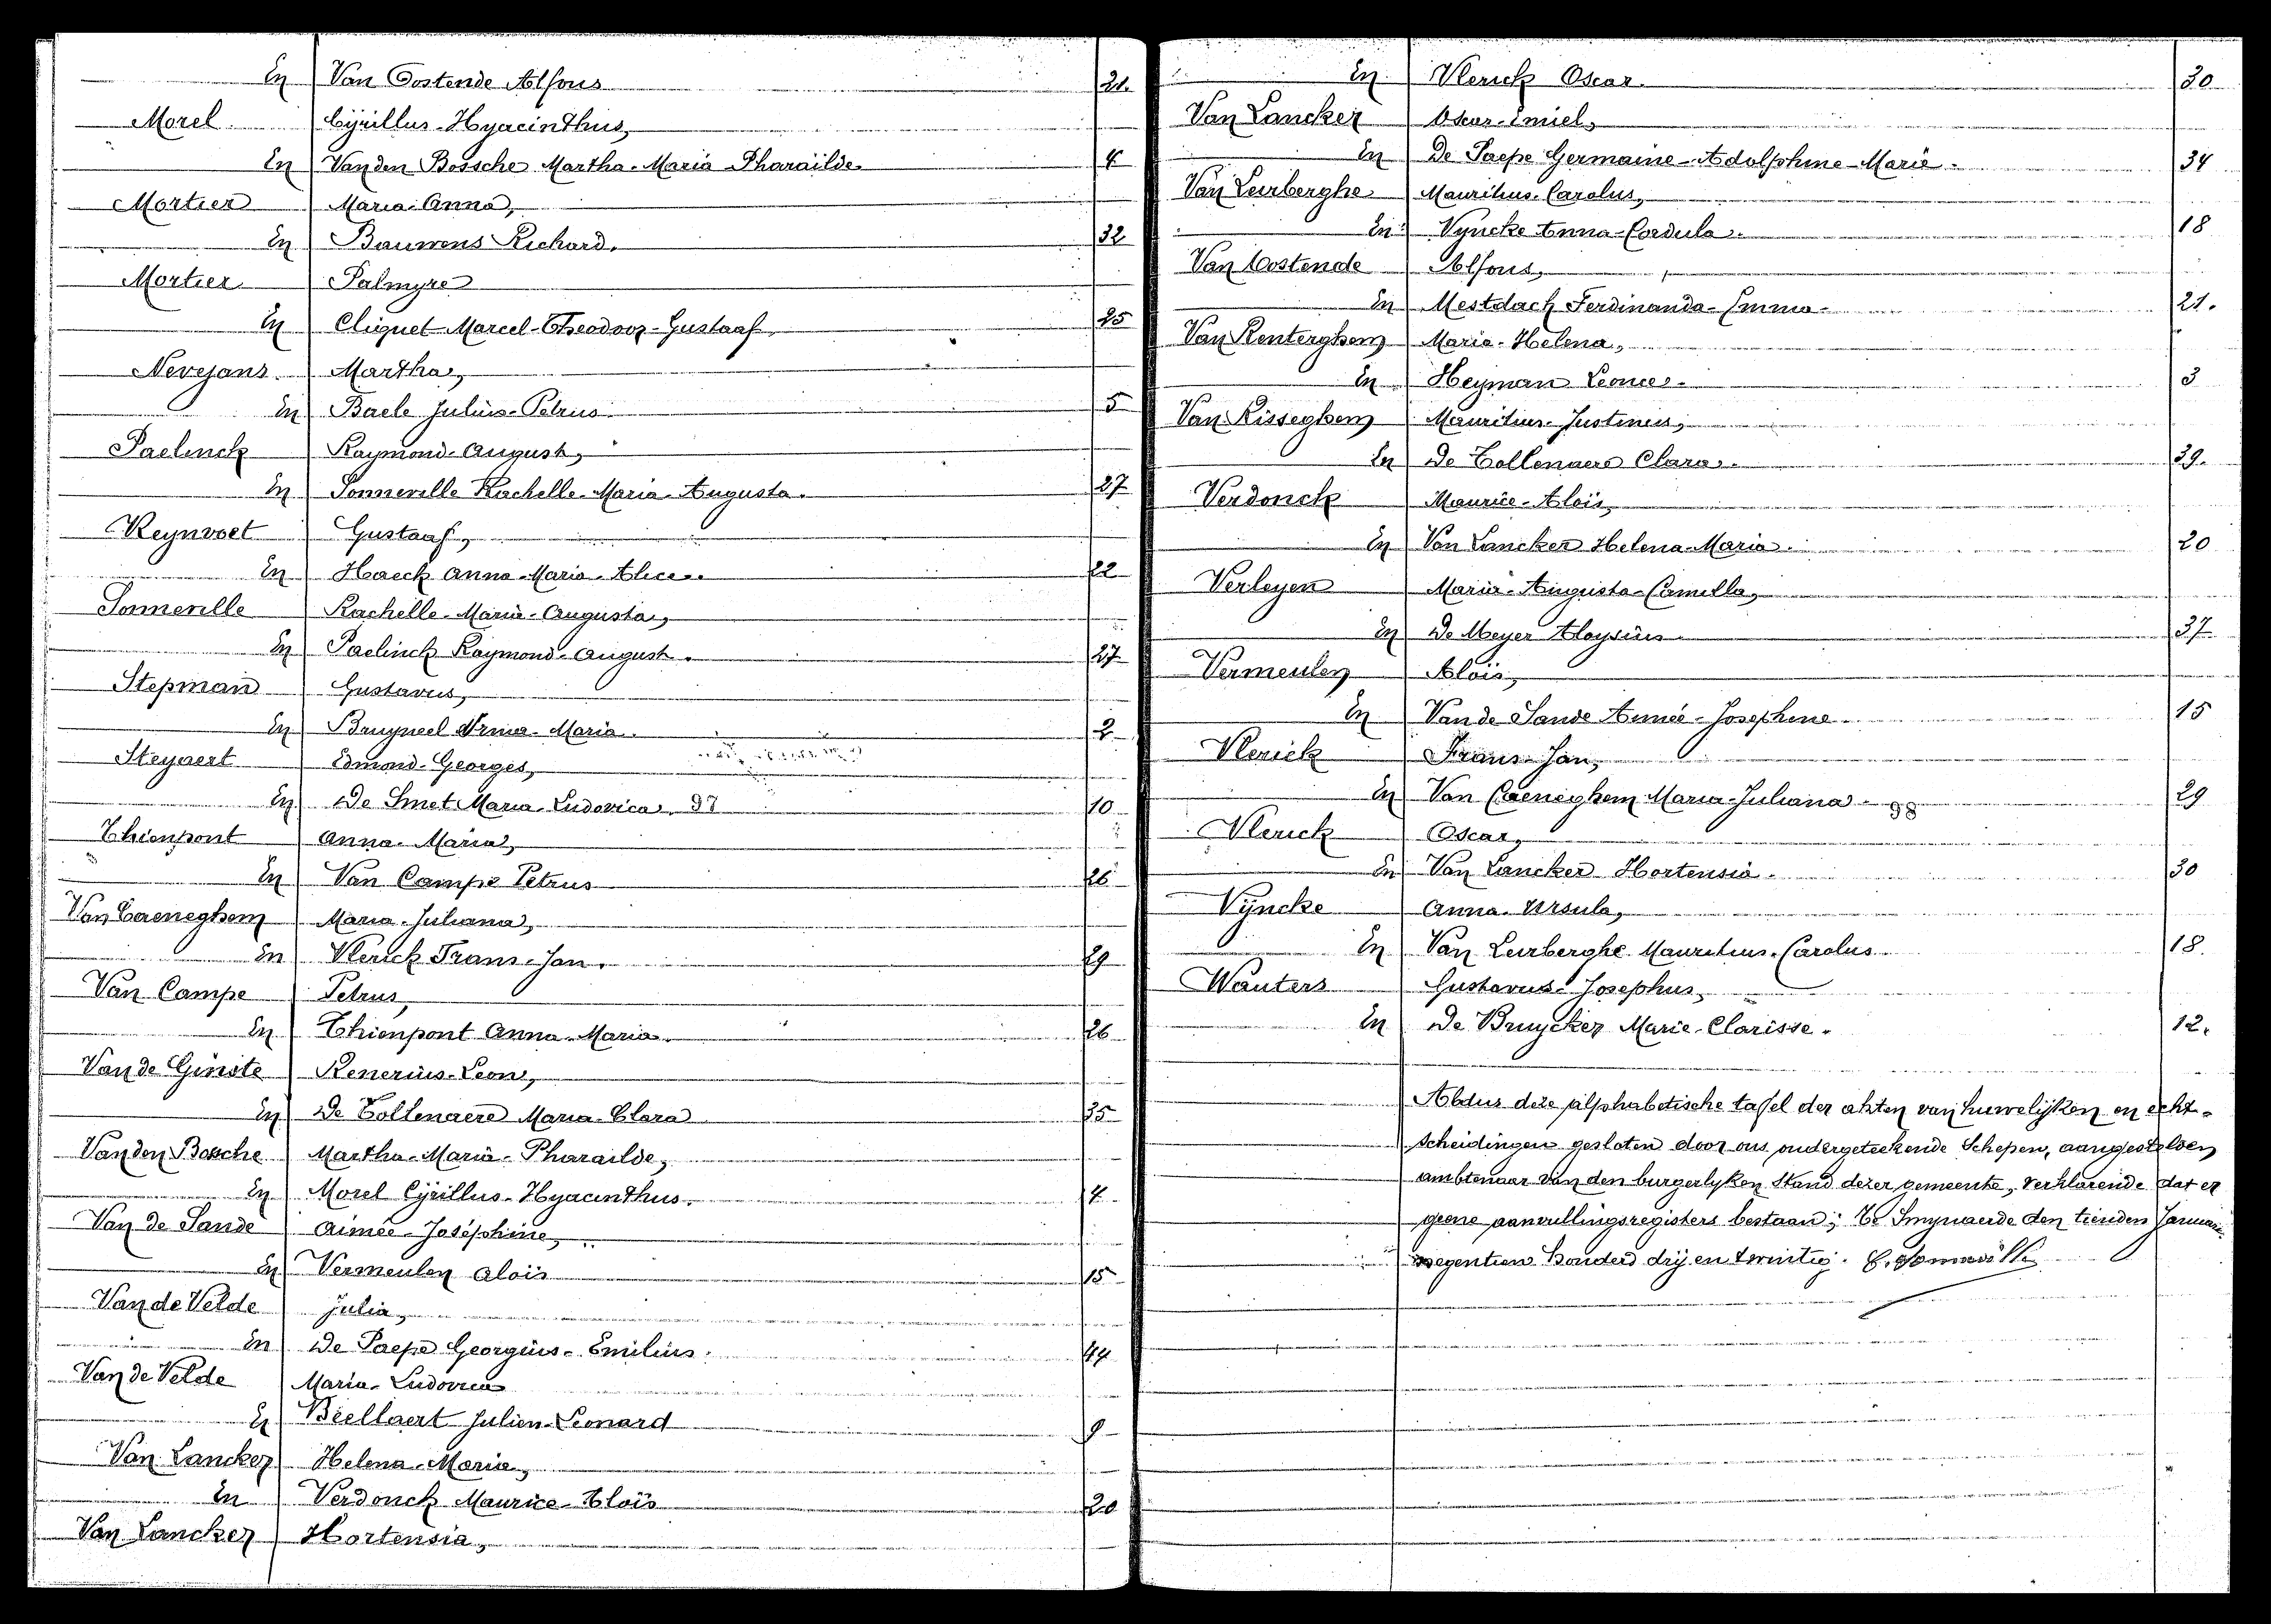 En Van Oostende Alfons 21.
Morel Cÿrillus-Hyacinthus,
En Van den Bossche Martha-Maria-Pharaïlde 4
Mortier Maria-Anna,
En Bauwens Richard. 32
Mortier Palmyre
En Cliquet Marcel-Theodoor-Gustaaf. 25
Nevejans Martha,
En Baele Julius-Petrus 5
Paelinck Raymond-August,
En Sonneville Rachelle-Maria-Augusta. 27
Reynvoet Gustaaf,
En Haeck Anna-Maria-Alice. 22
Sonneville Rachelle-Maria-Augusta,
En Paelinck Raymond-August. 27
Stepman Gustavus,
En Bruyneel Irma-Maria. 2
Steyaert Edmond-Georges,
En De Smet Maria-Ludovica. 97 10
Thienpont Anna-Maria,
En Van Campe Petrus 26
Van Caeneghem Maria-Juliana,
En Vlerick Frans-Jan. 29
Van Campe Petrus,
En Thienpont Anna-Maria. 26
Van de Ginste Renerius-Leon,
En De Tollenaere Maria-Clara 35
Van den Bossche Martha-Maria-Pharaïlde,
En Morel Cÿrillus-Hyacinthus. 4
Van de Sande Aimée-Joséphine,
En Vermeulen Aloïs 15
Van de Velde Julia,
En De Paepe Georgius-Emilius. 44
Van de Velde Maria-Ludovica
En Beellaert Julien-Leonard 9
Van Lancker Helena-Maria,
En Verdonck Maurice-Aloïs 20
Van Lancker Hortensia,
En Vlerick Oscar. 30
Van Lancker Oscar-Emiel,
En De Paepe Germaine-Adolphine-Marie. 34
Van Leirberghe Mauritius-Carolus,
En Vyncke Anna-Cordula. 18
Van Oostende Alfons,
En Mestdach Ferdinanda-Emma. 21.
Van Renterghem Maria-Helena,
En Heyman Leonce. 3
Van Risseghem Mauritius-Justinus,
En De Tollenaere Clara. 39.
Verdonck Maurice-Aloïs,
En Van Lancker Helena-Maria. 20
Verleyen Maria-Augusta-Camilla,
En De Meyer Aloysius 37
Vermeulen Aloïs,
En Van de Sande Aimée-Josephine. 15
Vlerick Frans-Jan,
En Van Caeneghem Maria-Juliana. 98 29
Vlerick Oscar,
En Van Lancker Hortensia. 30
Vÿncke Anna-Ursula,
En Van Leirberghe Mauritius-Carolus. 18.
Wauters Gustavus-Josephus,
En De Bruycker Marie-Clarisse. 12.
Aldus deze alphabetische tafel der akten van huwelijken en echt-
scheidingen gesloten door ons ondergeteekende Schepen, aangestelden
ambtenaar van den burgerlyken Stand dezer gemeente, verklarende dat er
geene aanvullingsregisters bestaan; Te Smynaerde den tienden Januari
negentien honderd drij en twintig.